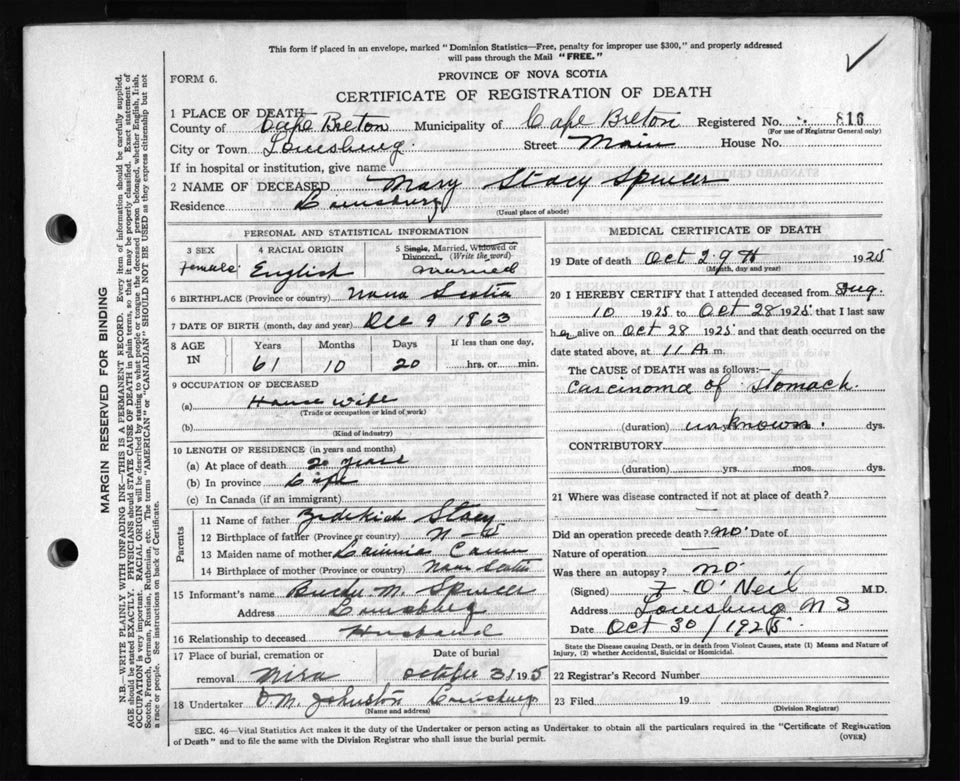 This form if placed in an envelope, marked "Dominion Statistics—Free, penalty for improper use $300," and properly addressed
will pass through the Mail "FREE."
FORM 6.
PROVINCE OF NOVA SCOTIA
CERTIFICATE OF REGISTRATION OF DEATH
1 PLACE OF DEATH
County of Cape Breton Municipality of Cape Breton Registered No. 816
(For use of Registrar General only)
City or Town Louisburg. Street Main House No.
If in hospital or institution, give name
2 NAME OF DECEASED Mary Stacy Spencer
Residence Louisburg
(Usual place of abode)
PERSONAL AND STATISTICAL INFORMATION
3 SEX 4 RACIAL ORIGIN 5 Single, Married, Widowed or Divorced, (Write the word)
Female English married
6 BIRTHPLACE (Province or country) Nova Scotia
7 DATE OF BIRTH (month, day and year) Dec 9 1863
8 AGE IN Years Months Days If less than one day,
61 10 20 hrs. or min.
9 OCCUPATION OF DECEASED
(a) House wife
(Trade or occupation or kind of work)
(b)
(Kind of industry)
10 LENGTH OF RESIDENCE (in years and months)
(a) At place of death 20 years
(b) In province Life
(c) In Canada (if an immigrant)
Parents
11 Name of father Stacy
12 Birthplace of father (Province or country)
13 Maiden name of mother
14 Birthplace of mother (Province or country) Nova Scotia
15 Informant's name M. Spencer
Address Louisburg
16 Relationship to deceased Husband
17 Place of burial, cremation or removal Date of burial
Mira 31 1925
18 Undertaker Johnston Louisburg
(Name and address)
MEDICAL CERTIFICATE OF DEATH
19 Date of death Oct 29th 1925
(Month, day and year)
20 I HEREBY CERTIFY that I attended deceased from Aug.
10 1925 to Oct 28 1925 that I last saw
her alive on Oct 28 1925 and that death occurred on
date stated above, at 11 A m.
The CAUSE of DEATH was as follows:—
Carcinoma of Stomach.
(duration) unknown. dys.
CONTRIBUTORY
(duration) yrs. mos. dys.
21 Where was disease contracted if not at place of death?
Did an operation precede death? no Date of
Nature of operation
Was there an autopsy? no.
(Signed) O'Neil M.D.
Address Louisburg N S
Date Oct 30/1925
State the Disease causing Death, or in death from Violent Causes, state (1) Means and Nature of
Injury, (2) whether Accidental, Suicidal or Homicidal.
22 Registrar's Record Number
23 Filed 19
(Division Registrar)
SEC. 46—Vital Statistics Act makes it the duty of the Undertaker or person acting as Undertaker to obtain all the particulars required in the "Certificate of Registration
of Death" and to file the same with the Division Registrar who shall issue the burial permit.
(OVER)
MARGIN RESERVED FOR BINDING
N.B.—WRITE PLAINLY WITH UNFADING INK—THIS IS A PERMANENT RECORD. Every item of information should be carefully supplied.
AGE should be stated EXACTLY. PHYSICIANS should STATE CAUSE OF DEATH in plain terms, so that it may be properly classified. Exact statement of
OCCUPATION is very important. RACIAL ORIGIN will be described by stating to what people or tongue the deceased person belonged, whether English, Irish,
Scotch, French, German, Russian, Ruthenian, etc. The terms "AMERICAN" or "CANADIAN" SHOULD NOT BE USED as they express citizenship but not
a race or people. See instructions on back of Certificate.